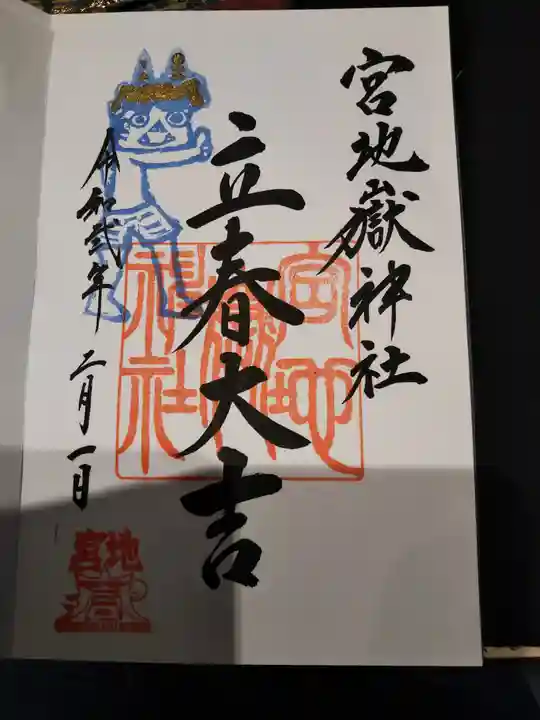 宮地嶽神社
立春大吉
令和弐年 二月一日
宮地嶽神社
宮地